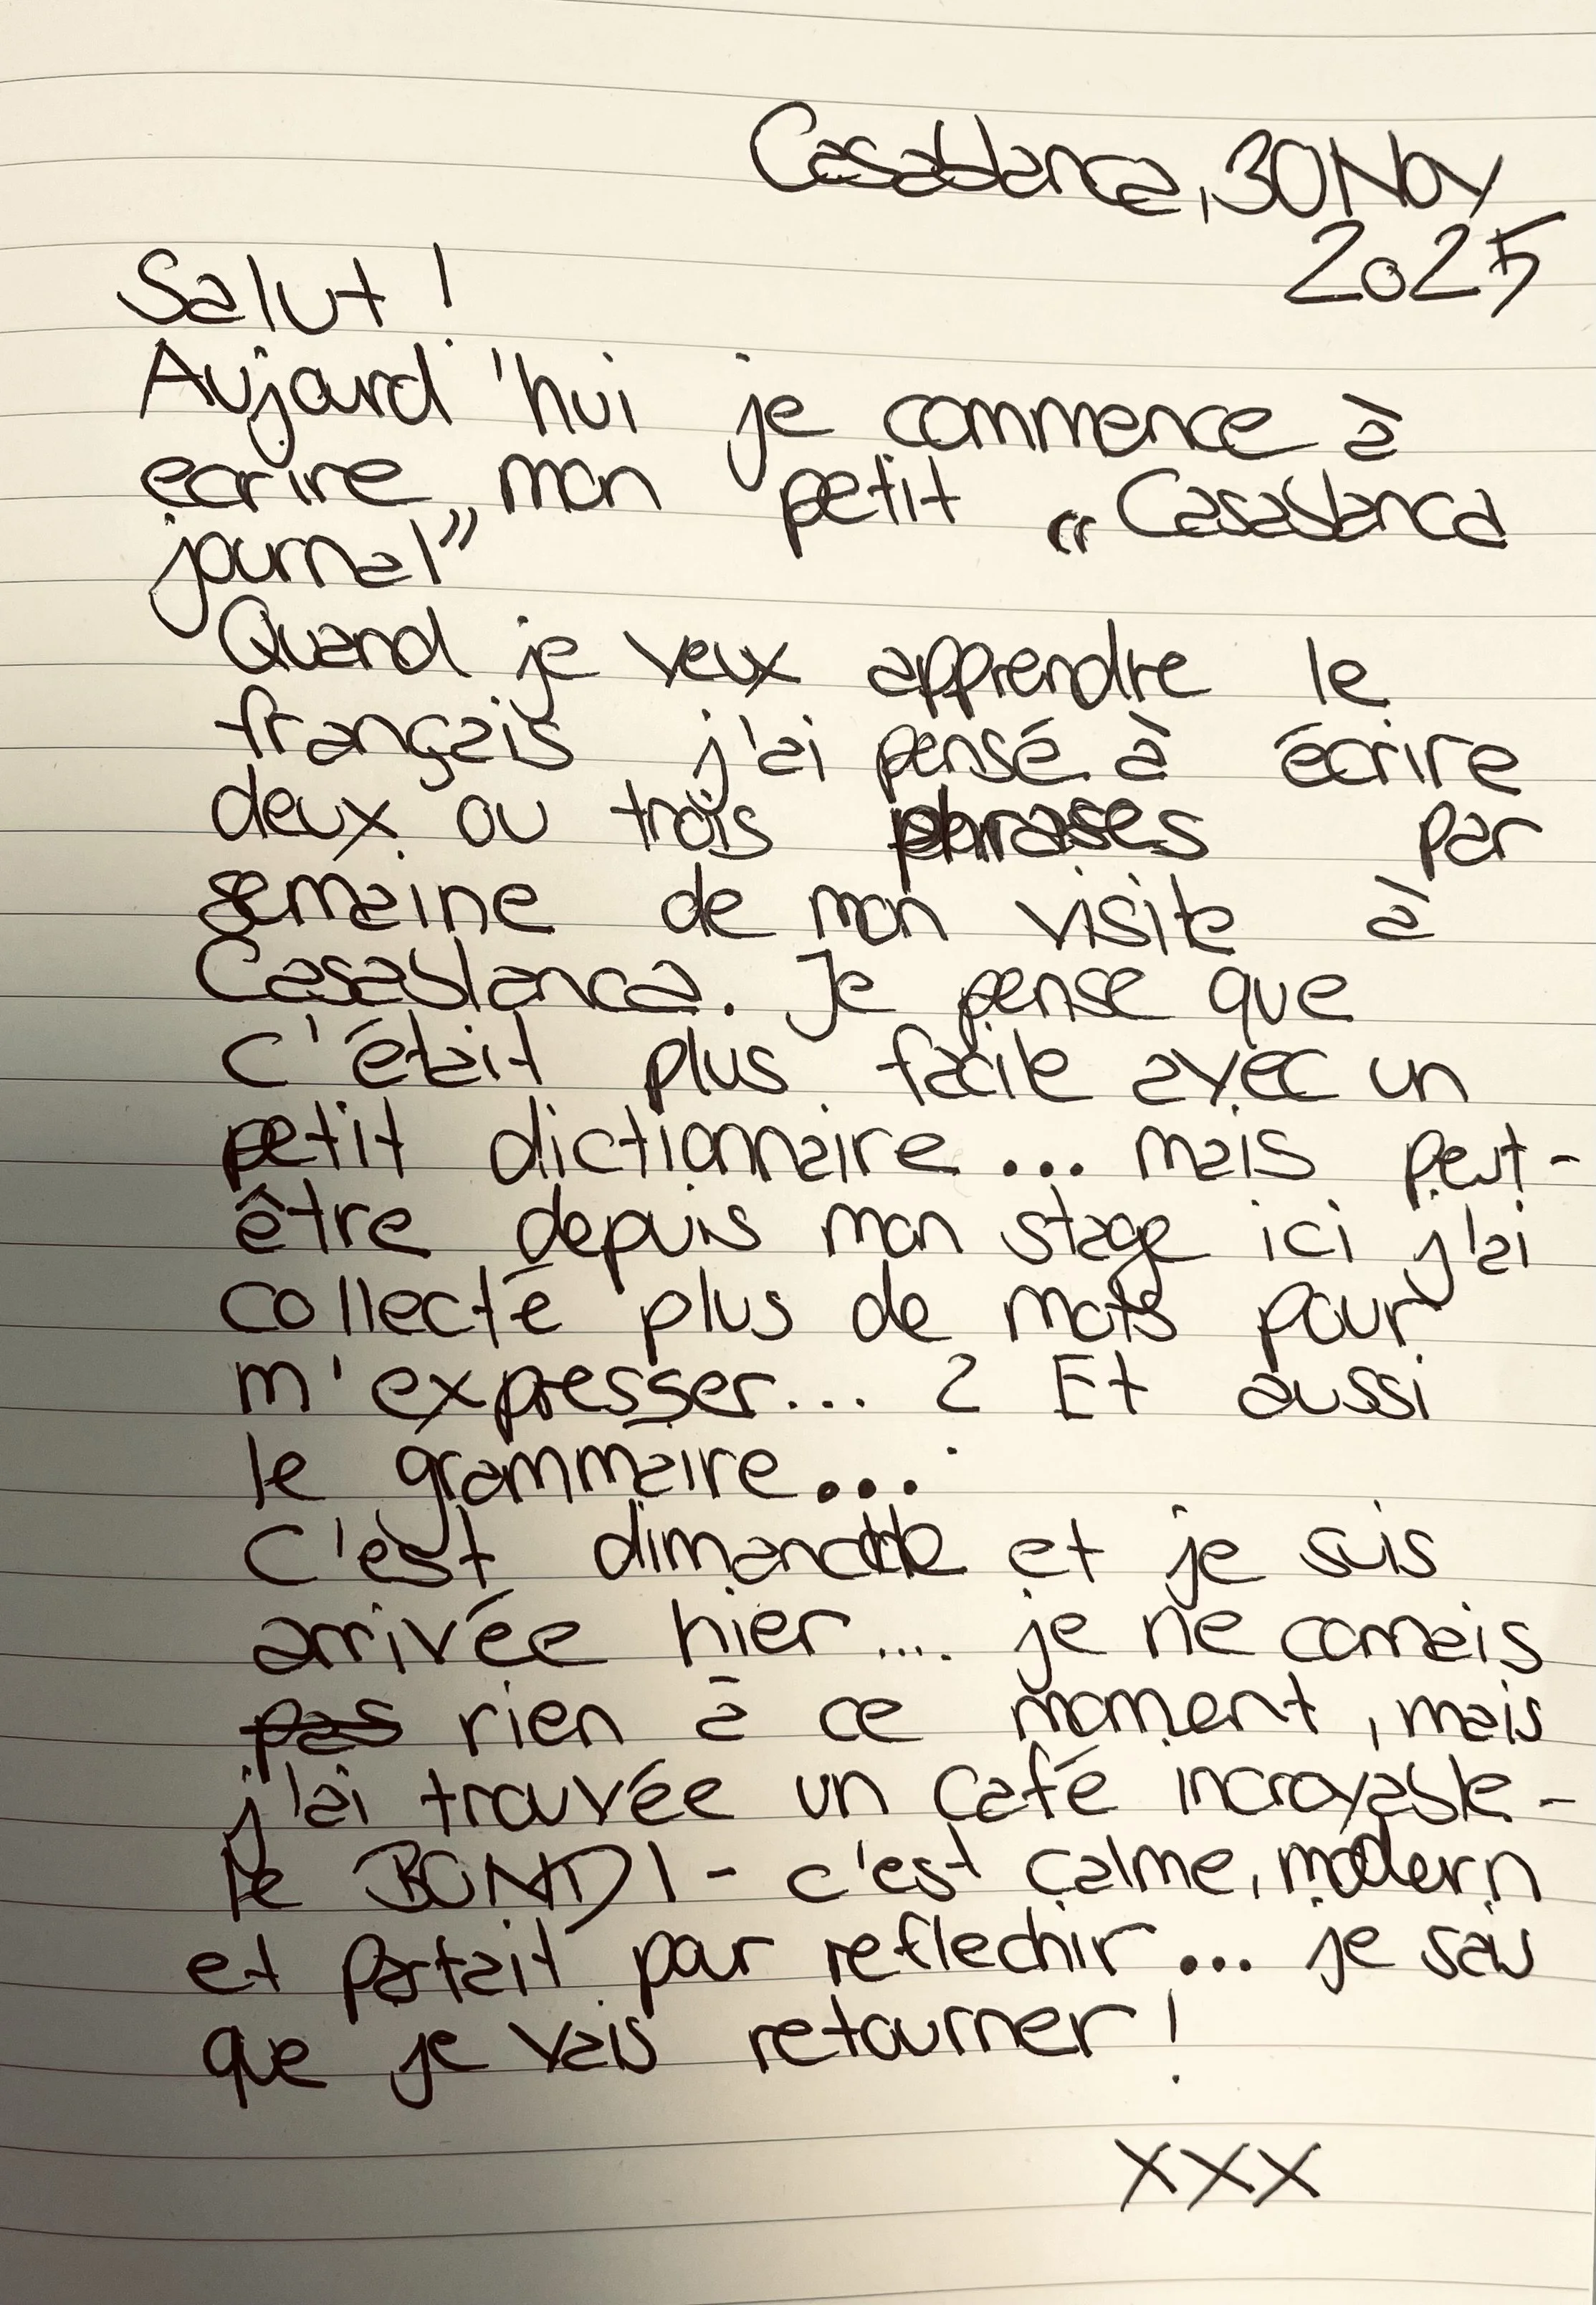 Casablanca, 30 Nov
2025
Salut !
Aujourd'hui je commence à
ecrire mon petit „Casablanca
journal”
Quand je veux apprendre le
français j'ai pensé à écrire
deux ou trois phrases par
semaine de mon visite à
Casablanca. Je pense que
c'était plus facile avec un
petit dictionnaire... mais peut-
être depuis mon stage ici j'ai
collecté plus de mots pour
m'expresser... ? Et aussi
le grammaire...
C'est dimanche et je suis
arrivée hier.... je ne connais
pas rien à ce moment, mais
j'ai trouvée un café incroyable -
le BONDI - c'est calme, modern
et parfait pour reflechir... je sais
que je vais retourner !
XXX